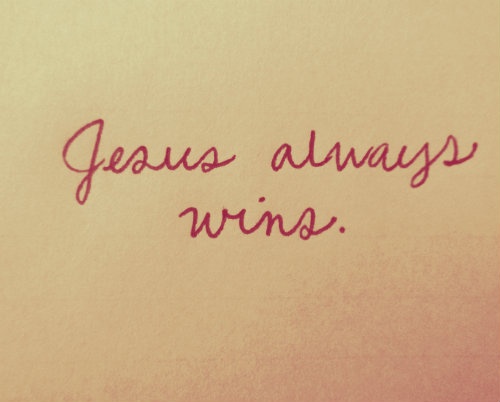 Jesus always
wins.